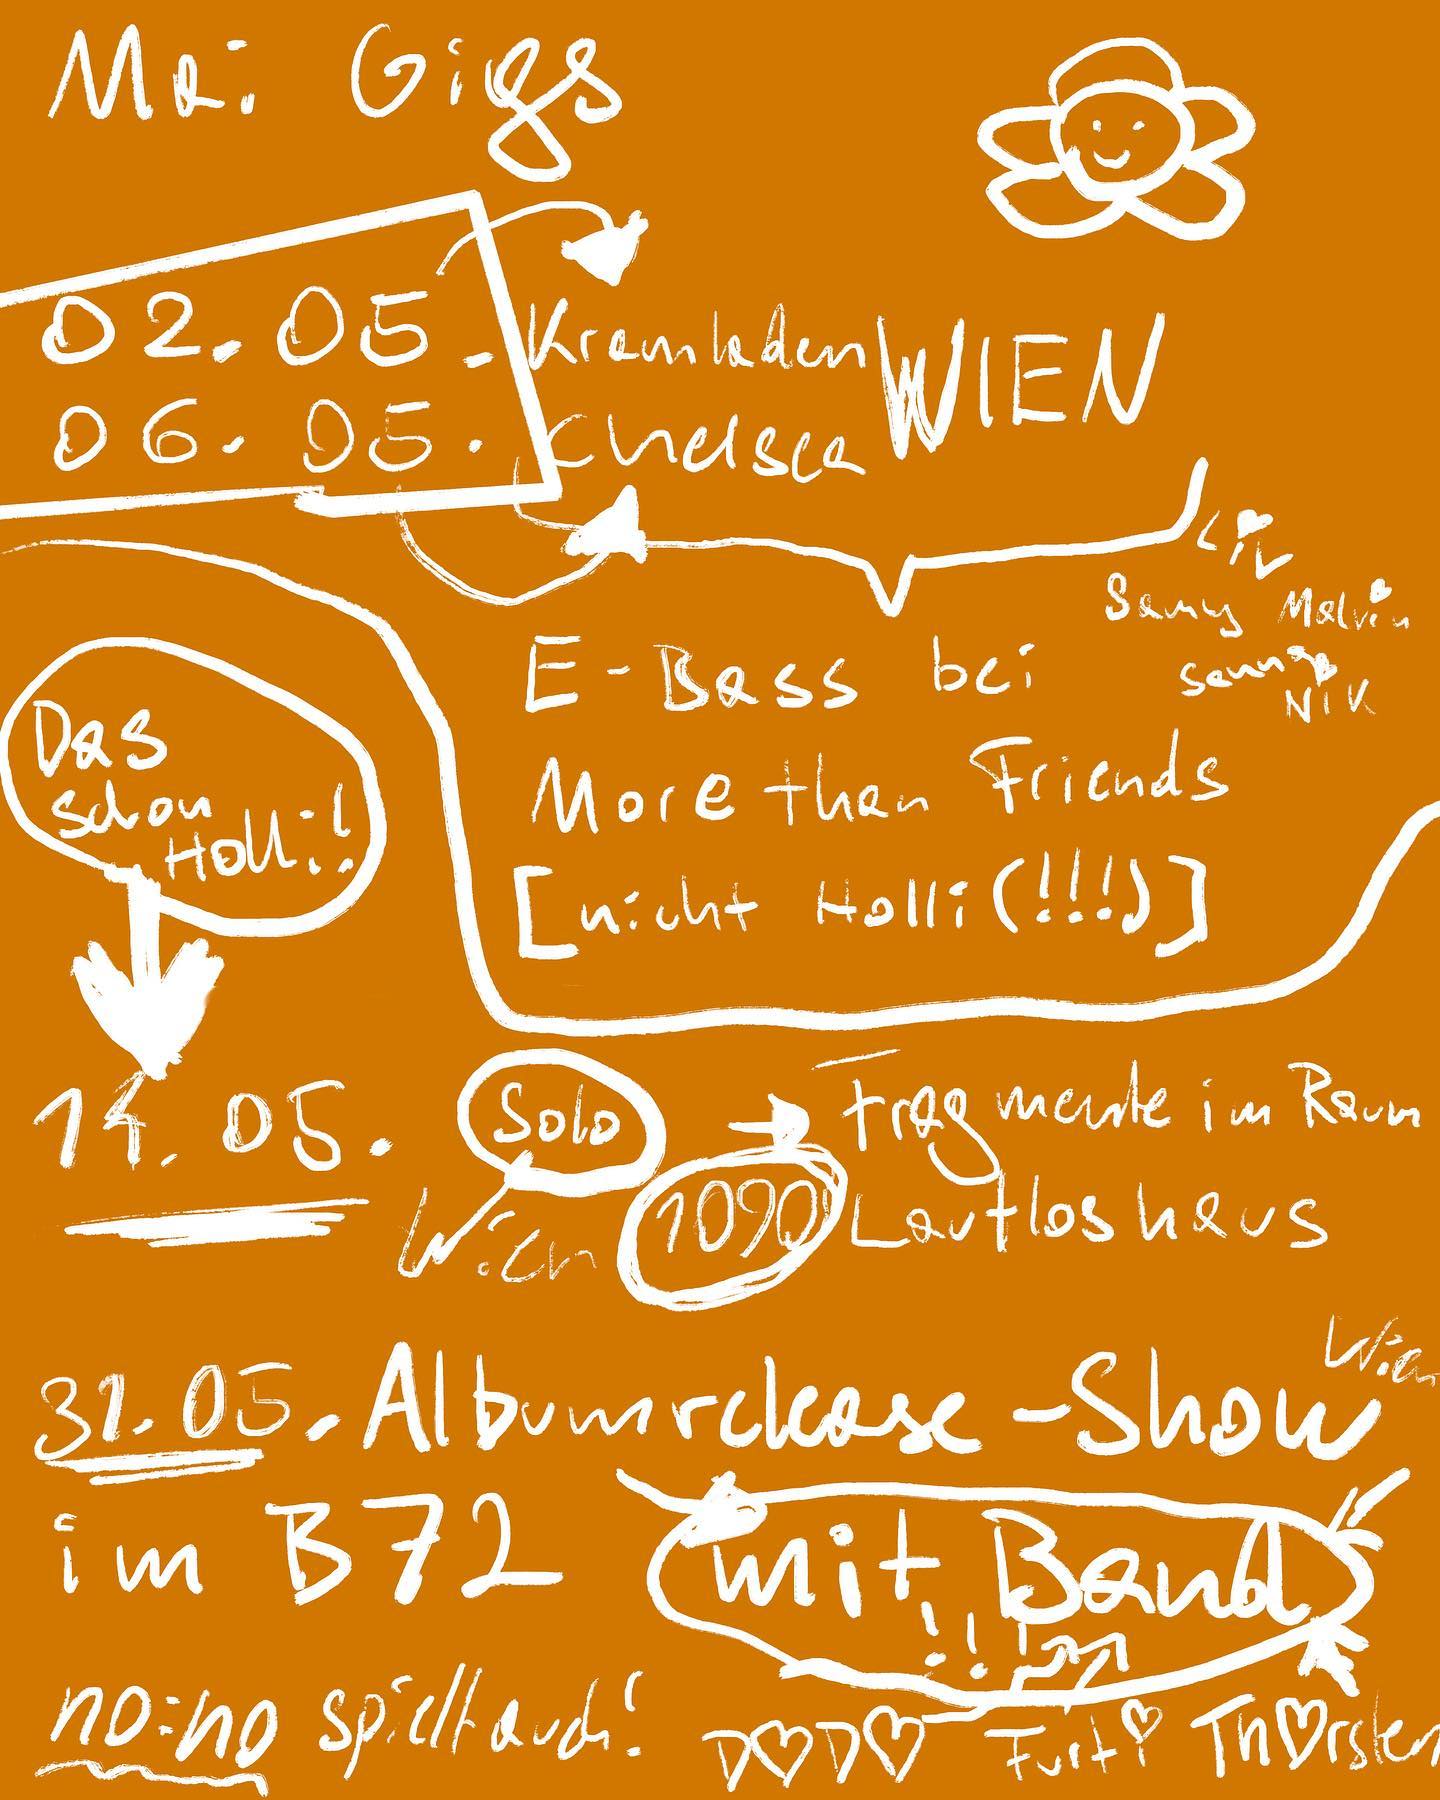 Mai Gigs
02.05. Kramladen WIEN
06.05. Chelsea
Liv
Samy Malvin
NIK
E-Bass bei
More than Friends
[nicht Holli (!!!)]
Das
schon
Holli!!
14.05. Solo Fragmente im Raum
Wien 1090 Lautloshaus
Wien
31.05. Albumrelease-Show
im B72 mit Band
!!!
no:no spielt auch! DODO Furti Thorsten